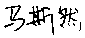 马斯然